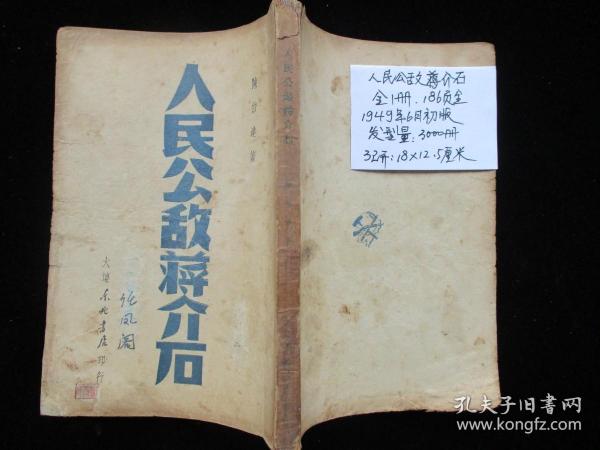 人民公敌蒋介石
陳伯達著
大連东北书店印行
张凤阁
人民公敌蒋介石
人民公敌蒋介石
全1册.186页全
1949年6月初版
发型量:3000册
32开:18×12.5厘米
孔夫子旧书网
www.kongfz.com